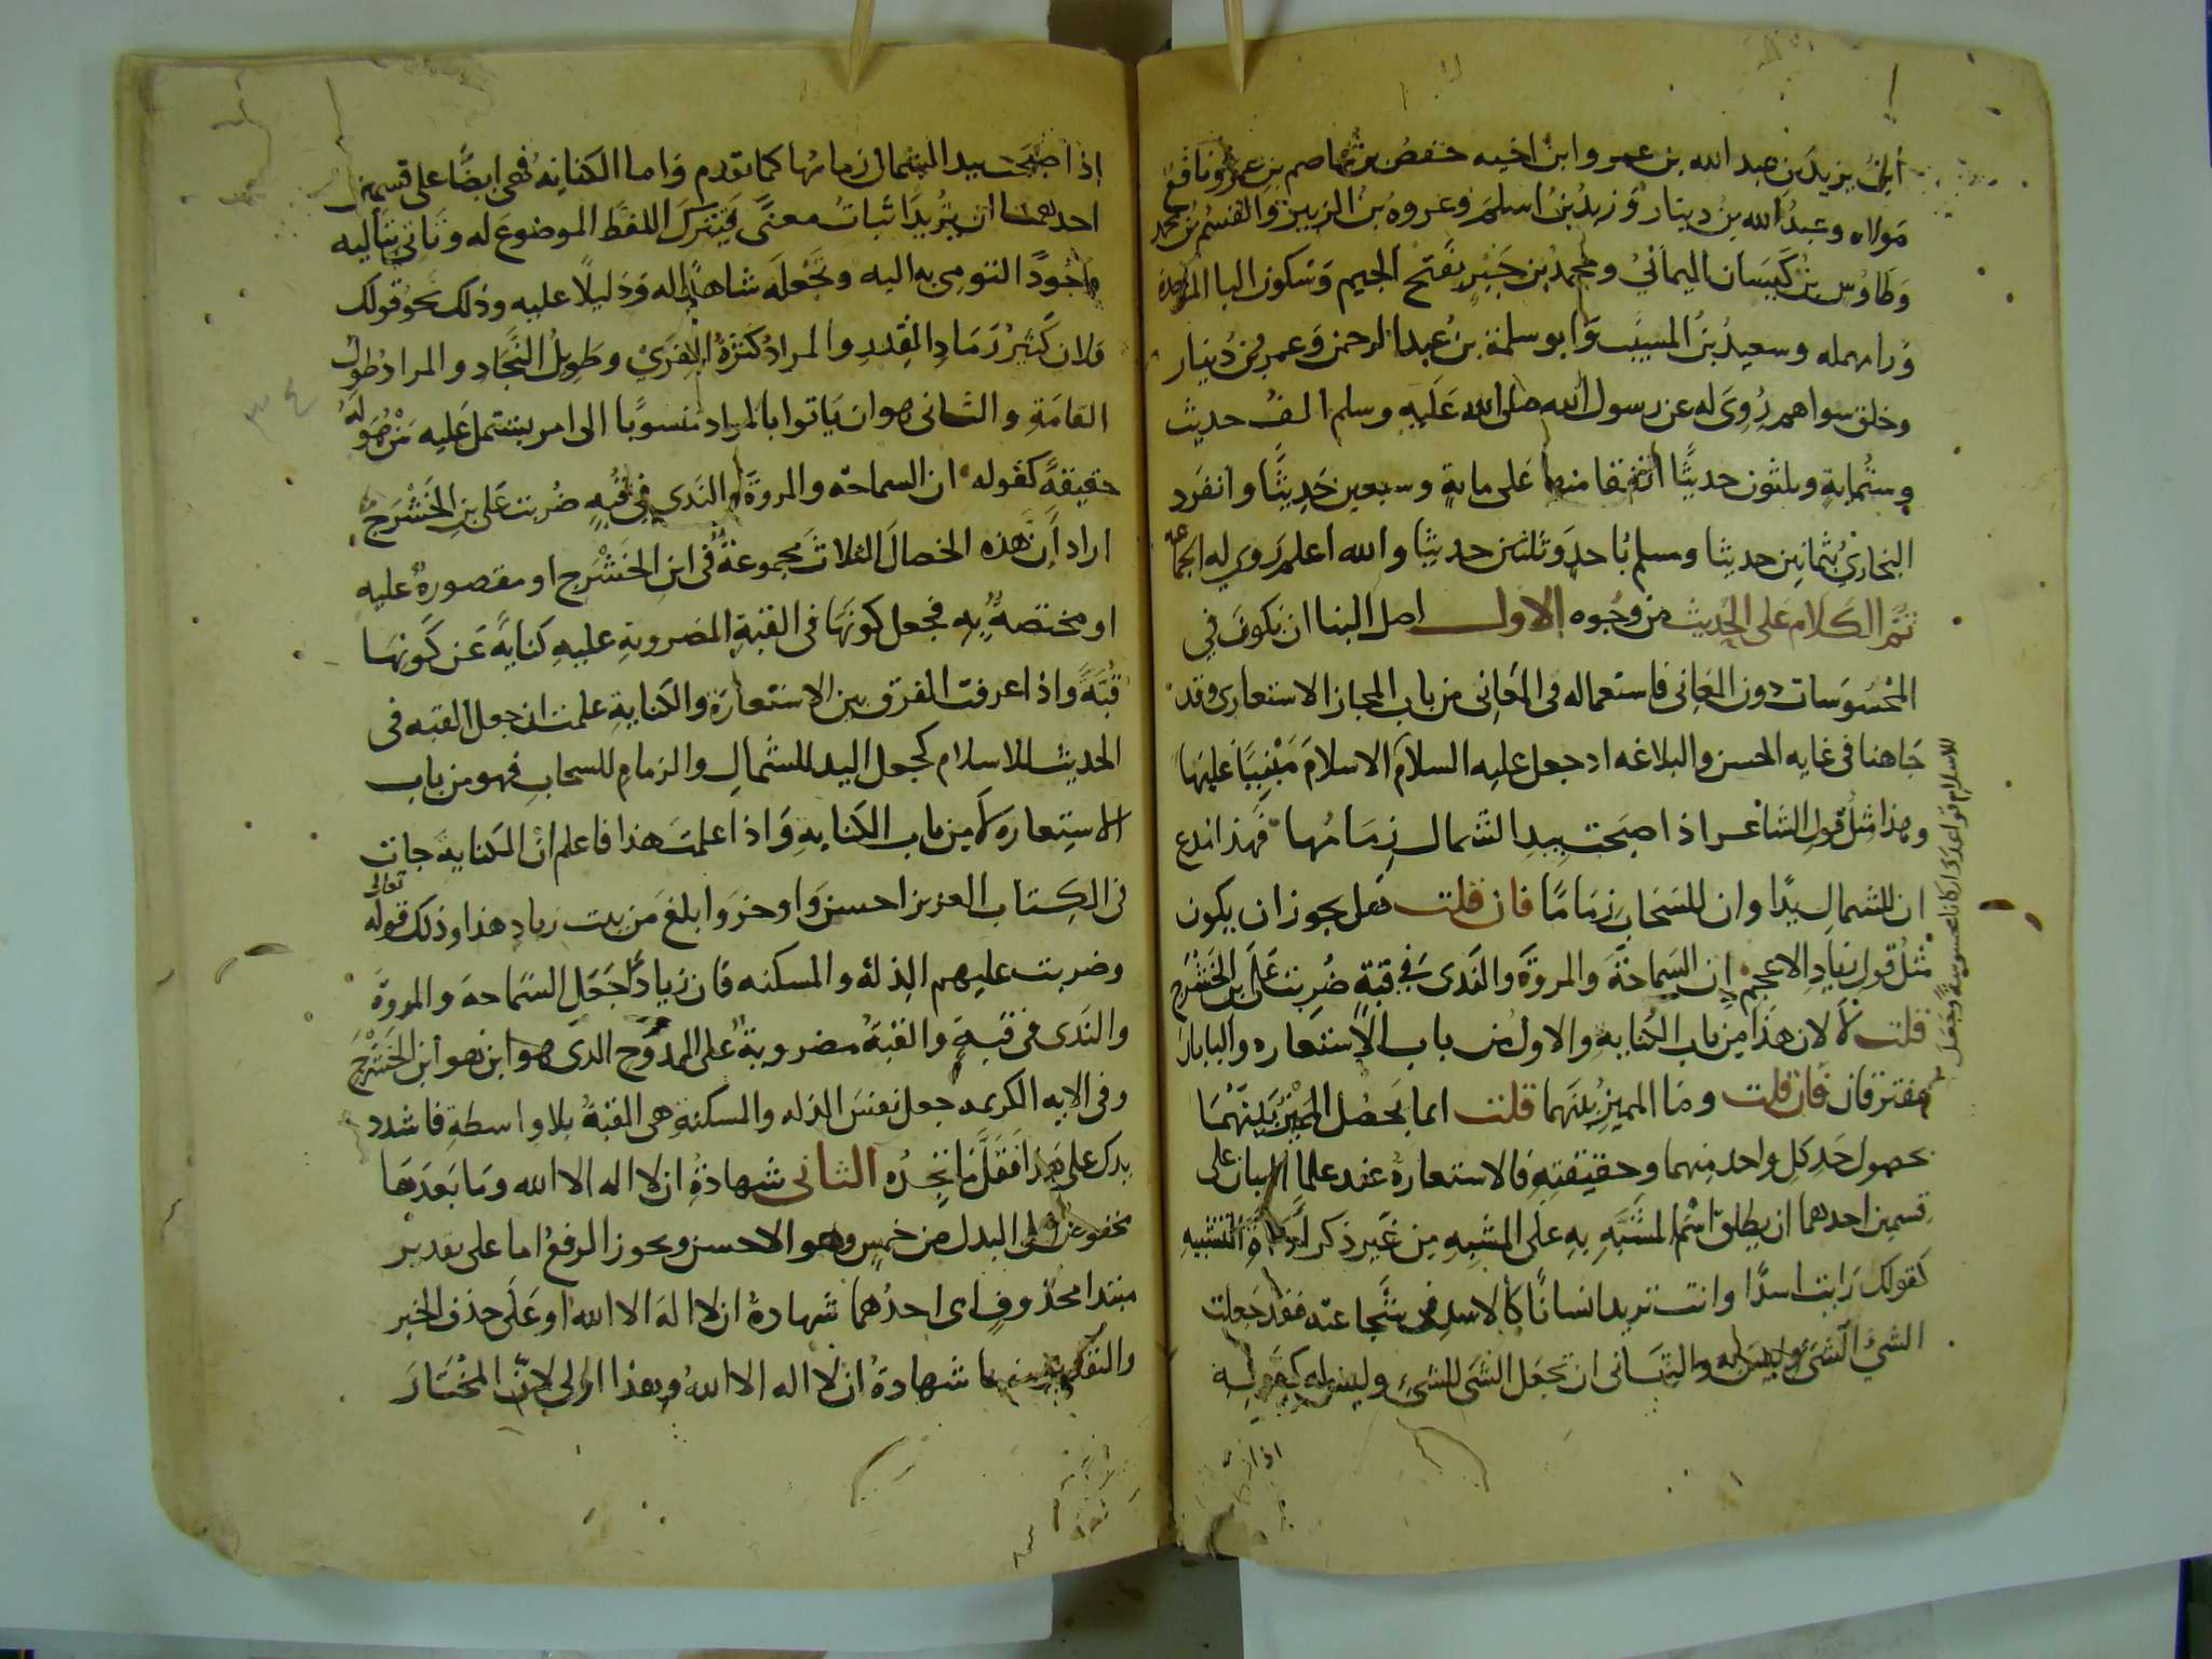 ابن يزيد بن عبد الله بن عمر وابن اخيه حفص بن عاصم بن عمر ونافع
مولاه وعبد الله بن دينار وزيد بن اسلم وعروه بن الزبير والقسم بن محمد
وطاوس بن كيسان اليماني ومحمد بن جبير بفتح الجيم وسكون البا الموحدة
ورا مهمله وسعيد بن المسيب وابو سلمة بن عبد الرحمن وعمرو بن دينار
وخلق سواهم روى له عن رسول الله صلى الله عليه وسلم الف حديث
وستماية وثلثون حديثا اتفقا منها على ماية وسبعين حديثا وانفرد
البخاري بثمانين حديثا ومسلم باحد وثلثين حديثا والله اعلم روى له الجماعه
ثم الكلام على الحديث من وجوه الاول اصل البنا ان يكون في
المحسوسات دون المعاني فاستعماله في المعاني من باب المجاز الاستعاري وقد
جا هنا في غايه الحسن والبلاغه اذ جعل عليه السلام الاسلام مبنيا عليها
وهذا مثل قول الشاعر اذ اصبحت بيد الشمال زمامها فهذا ابدع
ان للشمال يدا وان للسحاب زماما فان قلت فهل يجوز ان يكون
مثل قول زياد الاعجم ان السماحة والمروة والندى في قبة ضربت على ابن الحشرج
قلت لا لان هذا من باب الكناية والاول من باب الاستعاره والبابان
مفترقان فان قلت وما المميز بينهما قلت انما يحصل المميز بينهما
بحصول حد كل واحد منهما وحقيقته فالاستعارة عند علما البيان على
قسمين احدهما ان يطلق اسم المشبه به على المشبه من غير ذكر اداة التشبيه
كقولك رايت اسدا وانت تريد انسانا كالاسد في شجاعته فقد جعلت
الشئ الشئ وليس به والثاني ان تجعل الشي للشئ وليس له كقوله
للاسلام قواعد واركانا محسوسة وجعل
اذا
اذ اصبحت بيد الشمال زمامها كما تقدم واما الكناية فهي ايضا على قسمين
احدهما ان يريد اثبات معنى فيترك اللفظ الموضوع له وياتي بتاليه
وجودا لتومي به اليه وتجعله شاهدا له ودليلا عليه وذلك نحو قولك
فلان كثير رماد القدر والمراد كثرة القرى وطويل النجاد والمراد طول
القامة والثاني هو ان ياتوا بالمراد منسوبا الى امر يشتمل عليه من هو له
حقيقة كقوله ان السماحة والمروة والندى في قبه ضربت على بن الحشرج
اراد ان هذه الخصال الثلاث مجموعة في ابن الحشرج او مقصورة عليه
او مختصة به فجعل كونها في القبة المضروبة عليه كناية عن كونها
قبة واذا عرفت الفرق بين الاستعارة والكناية علمت ان جعل القبه في
الحديث للاسلام كجعل اليد للشمال والزمام للسحاب فهو من باب
الاستعاره لا من باب الكناية واذا علمت هذا فاعلم ان الكناية جات
في الكتاب العزيز احسن واوجز وابلغ من بيت زياد هذا وذلك قوله تعالى
وضربت عليهم الذلة والمسكنه فان زيادا جعل السماحة والمروة
والندى في قبة والقبة مضروبة على الممدوح الذي هو ابن هو ابن الحشرج
وفي الايه الكريمه جعل نفس الذله والمسكنة هي القبة بلا واسطة فاشدد
يدك على هذا فقل ما تجده الثاني شهادة ان لا اله الا الله وما بعدها
مخفوض على البدل من خمس وهو الاحسن ويجوز الرفع اما على تقدير
مبتدا محذوف اى احدهما شهادة ان لا اله الا الله او على حذف الخبر
والتقدير منها شهادة ان لا اله الا الله وهذا اولى لان المختار
٣٤